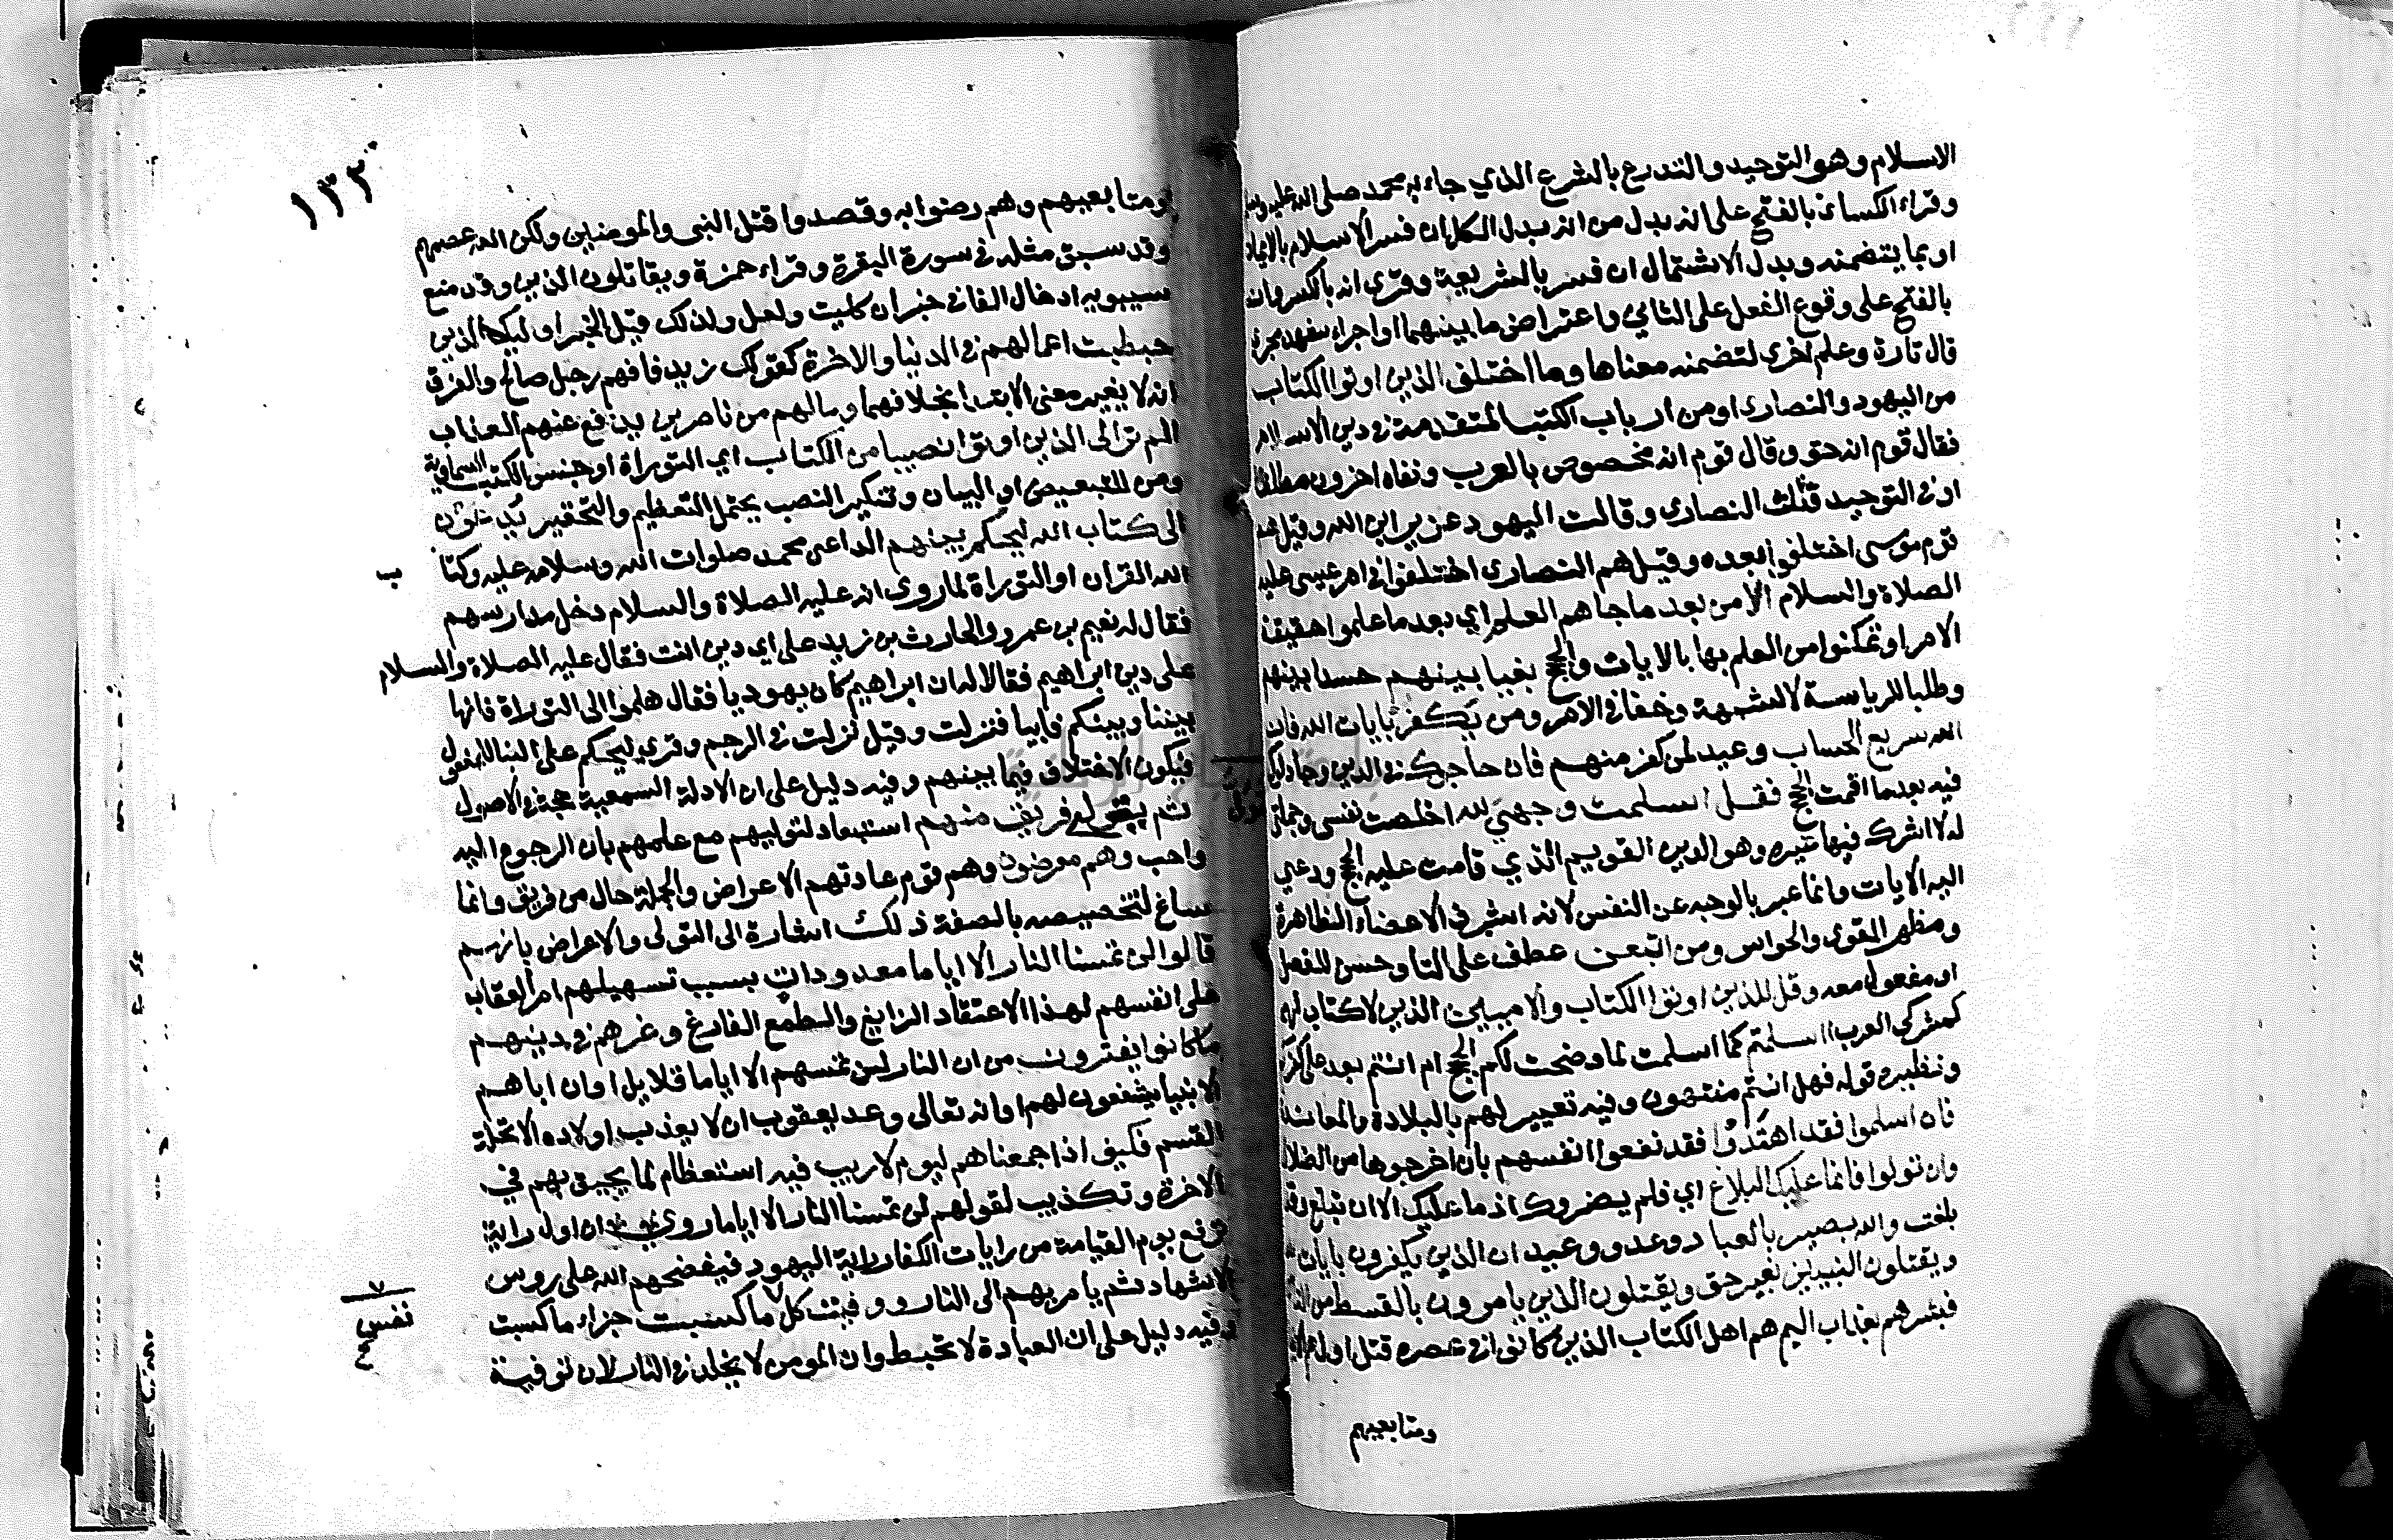 الاسلام وهو التوحيد والتدرع بالشرع الذي جاء به محمد صلى الله عليه وسلم
وقراء الكسائى بالفتح على انه بدل من انه بدل الكل ان فسر الاسلام بالايمان
او بما يتضمنه وبدل الاشتمال ان فسر بالشريعة وقرى انه بالكسر وان
بالفتح على وقوع الفعل على الثاني واعتراض ما بينهما او اجراء شهد مجرى
قال تارة وعلم اخرى لتضمنه معناها وما اختلف الذين اوتوا الكتاب
من اليهود والنصارى او من ارباب الكتب المتقدمة فى دين الاسلام
فقال قوم انه حق وقال قوم انه مخصوص بالعرب ونفاه اخرون مطلقا
او فى التوحيد فثلث النصارى وقالت اليهود عزير ابن الله وقيل هم
قوم موسى اختلفوا بعده وقيل هم النصارى اختلفوا فى امر عيسى عليه
الصلاة والسلام الا من بعد ما جاهم العلم اي بعد ما علموا حقيقة
الامر او تمكنوا من العلم بها بالايات والحجج بغيا بينهم حسدا بينهم
وطلبا للرياسة لا لشبهة وخفا فى الامر ومن يكفر بايات الله فان
الله سريع الحساب وعيد لمن كفر منهم فان حاجوك فى الدين وجادلوك
فيه بعدما اقمت الحجج فقل اسلمت وجهي لله اخلصت نفسى وجملتى
له لا اشرك فيها غيره وهو الدين القويم الذي قامت عليه الحجج ودعي
اليه الايات وانما عبر بالوجه عن النفس لانه اشرف الاعضاء الظاهرة
ومظهر القوى والحواس ومن اتبعن عطف على التا وحسن للفصل
او مفعول معه وقل للذين اوتوا الكتاب والاميين الذين لا كتاب لهم
كمشركي العرب ااسلمتم كما اسلمت لما وضحت لكم الحجج ام انتم بعد على كفركم
ونظيره قوله فهل انتم منتهون وفيه تعيير لهم بالبلادة والمعاندة
فان اسلموا فقد اهتدوا فقد نفعوا انفسهم بان اخرجوها من الضلال
وان تولوا فانما عليك البلاغ اي فلم يضروك اذ ما عليك الا ان تبلغ وقد
بلغت والله بصير بالعباد وعد ووعيد ان الذين يكفرون بايات الله
ويقتلون النبيين بغير حق ويقتلون الذين يامرون بالقسط من الناس
فبشرهم بعذاب اليم هم اهل الكتاب الذين كانوا فى عصره قتل اولهم الانبيا
ومتابعيهم
١٣٣
ومتابعيهم وهم رضوا به وقصدوا قتل النبى والمومنين ولكن الله عصمهم
وقد سبق مثله فى سورة البقرة وقراء حمزة ويقاتلون الذين وقد منع
سيبويه ادخال الفا فى خبر ان كليت ولعل ولذلك قيل الخبر اوليك الذين
حبطت اعمالهم فى الدنيا والاخرة كقولك زيد فافهم رجل صالح والفرق
انه لا يغير معنى الابتدا بخلافهما وما لهم من ناصرين يدفع عنهم العذاب
الم تر الى الذين اوتوا نصيبا من الكتاب اي التوراة او جنس الكتب السماوية
ومن للتبعيض او البيان وتنكير النصب يحتمل التعظيم والتحقير يدعون
الى كتاب الله ليحكم بينهم الداعى محمد صلوات الله وسلامه عليه وكتا
ب
الله القران او التوراة لما روى انه عليه الصلاة والسلام دخل مدارسهم
فقال له نعيم بن عمرو والحارث بن زيد على اي دين انت فقال عليه الصلاة والسلام
على دين ابراهيم فقالا له ان ابراهيم كان يهوديا فقال هلموا الى التوراة فانها
بيننا وبينكم فابيا فنزلت وقيل نزلت فى الرجم وقري ليحكم على البنا للمفعول
فيكون الاختلاف فيما بينهم وفيه دليل على ان الادلة السمعية حجة فى الاصول
ثم يتولى فريق منهم استبعاد لتوليهم مع علمهم بان الرجوع اليه
واجب وهم معرضون وهم قوم عادتهم الاعراض والجملة حال من فريق وانما
ساغ لتخصيصه بالصفة ذلك اشارة الى التولى والاعراض بانهم
قالوا لن تمسنا النار الا اياما معدودات بسبب تسهيلهم امر العقاب
على انفسهم لهذا الاعتقاد الزايغ والطمع الفارغ وغرهم فى دينهم
ما كانوا يفترون من ان النار لن تمسهم الا اياما قلايل او ان اباهم
الانبيا يشفعون لهم او انه تعالى وعد يعقوب ان لا يعذب اولاده الا تحلة
القسم فكيف اذا جمعناهم ليوم لا ريب فيه استعظام لما يحيق بهم في
الاخرة وتكذيب لقولهم لن تمسنا النار الا اياما روي ان اول راية
ترفع يوم القيامة من رايات الكفار راية اليهود فيفضحهم الله على روس
الاشهاد ثم يامر بهم الى النار ووفيت كل ما كسبت جزاء ما كسبت
نفس
صح
وفيه دليل على ان العبادة لا تحبط وان المومن لا يخلد فى النار لان توفية